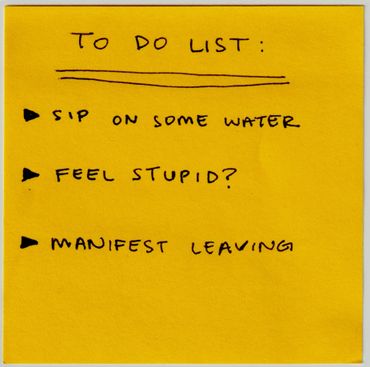 TO DO LIST:
▶ SIP ON SOME WATER
▶ FEEL STUPID?
▶ MANIFEST LEAVING